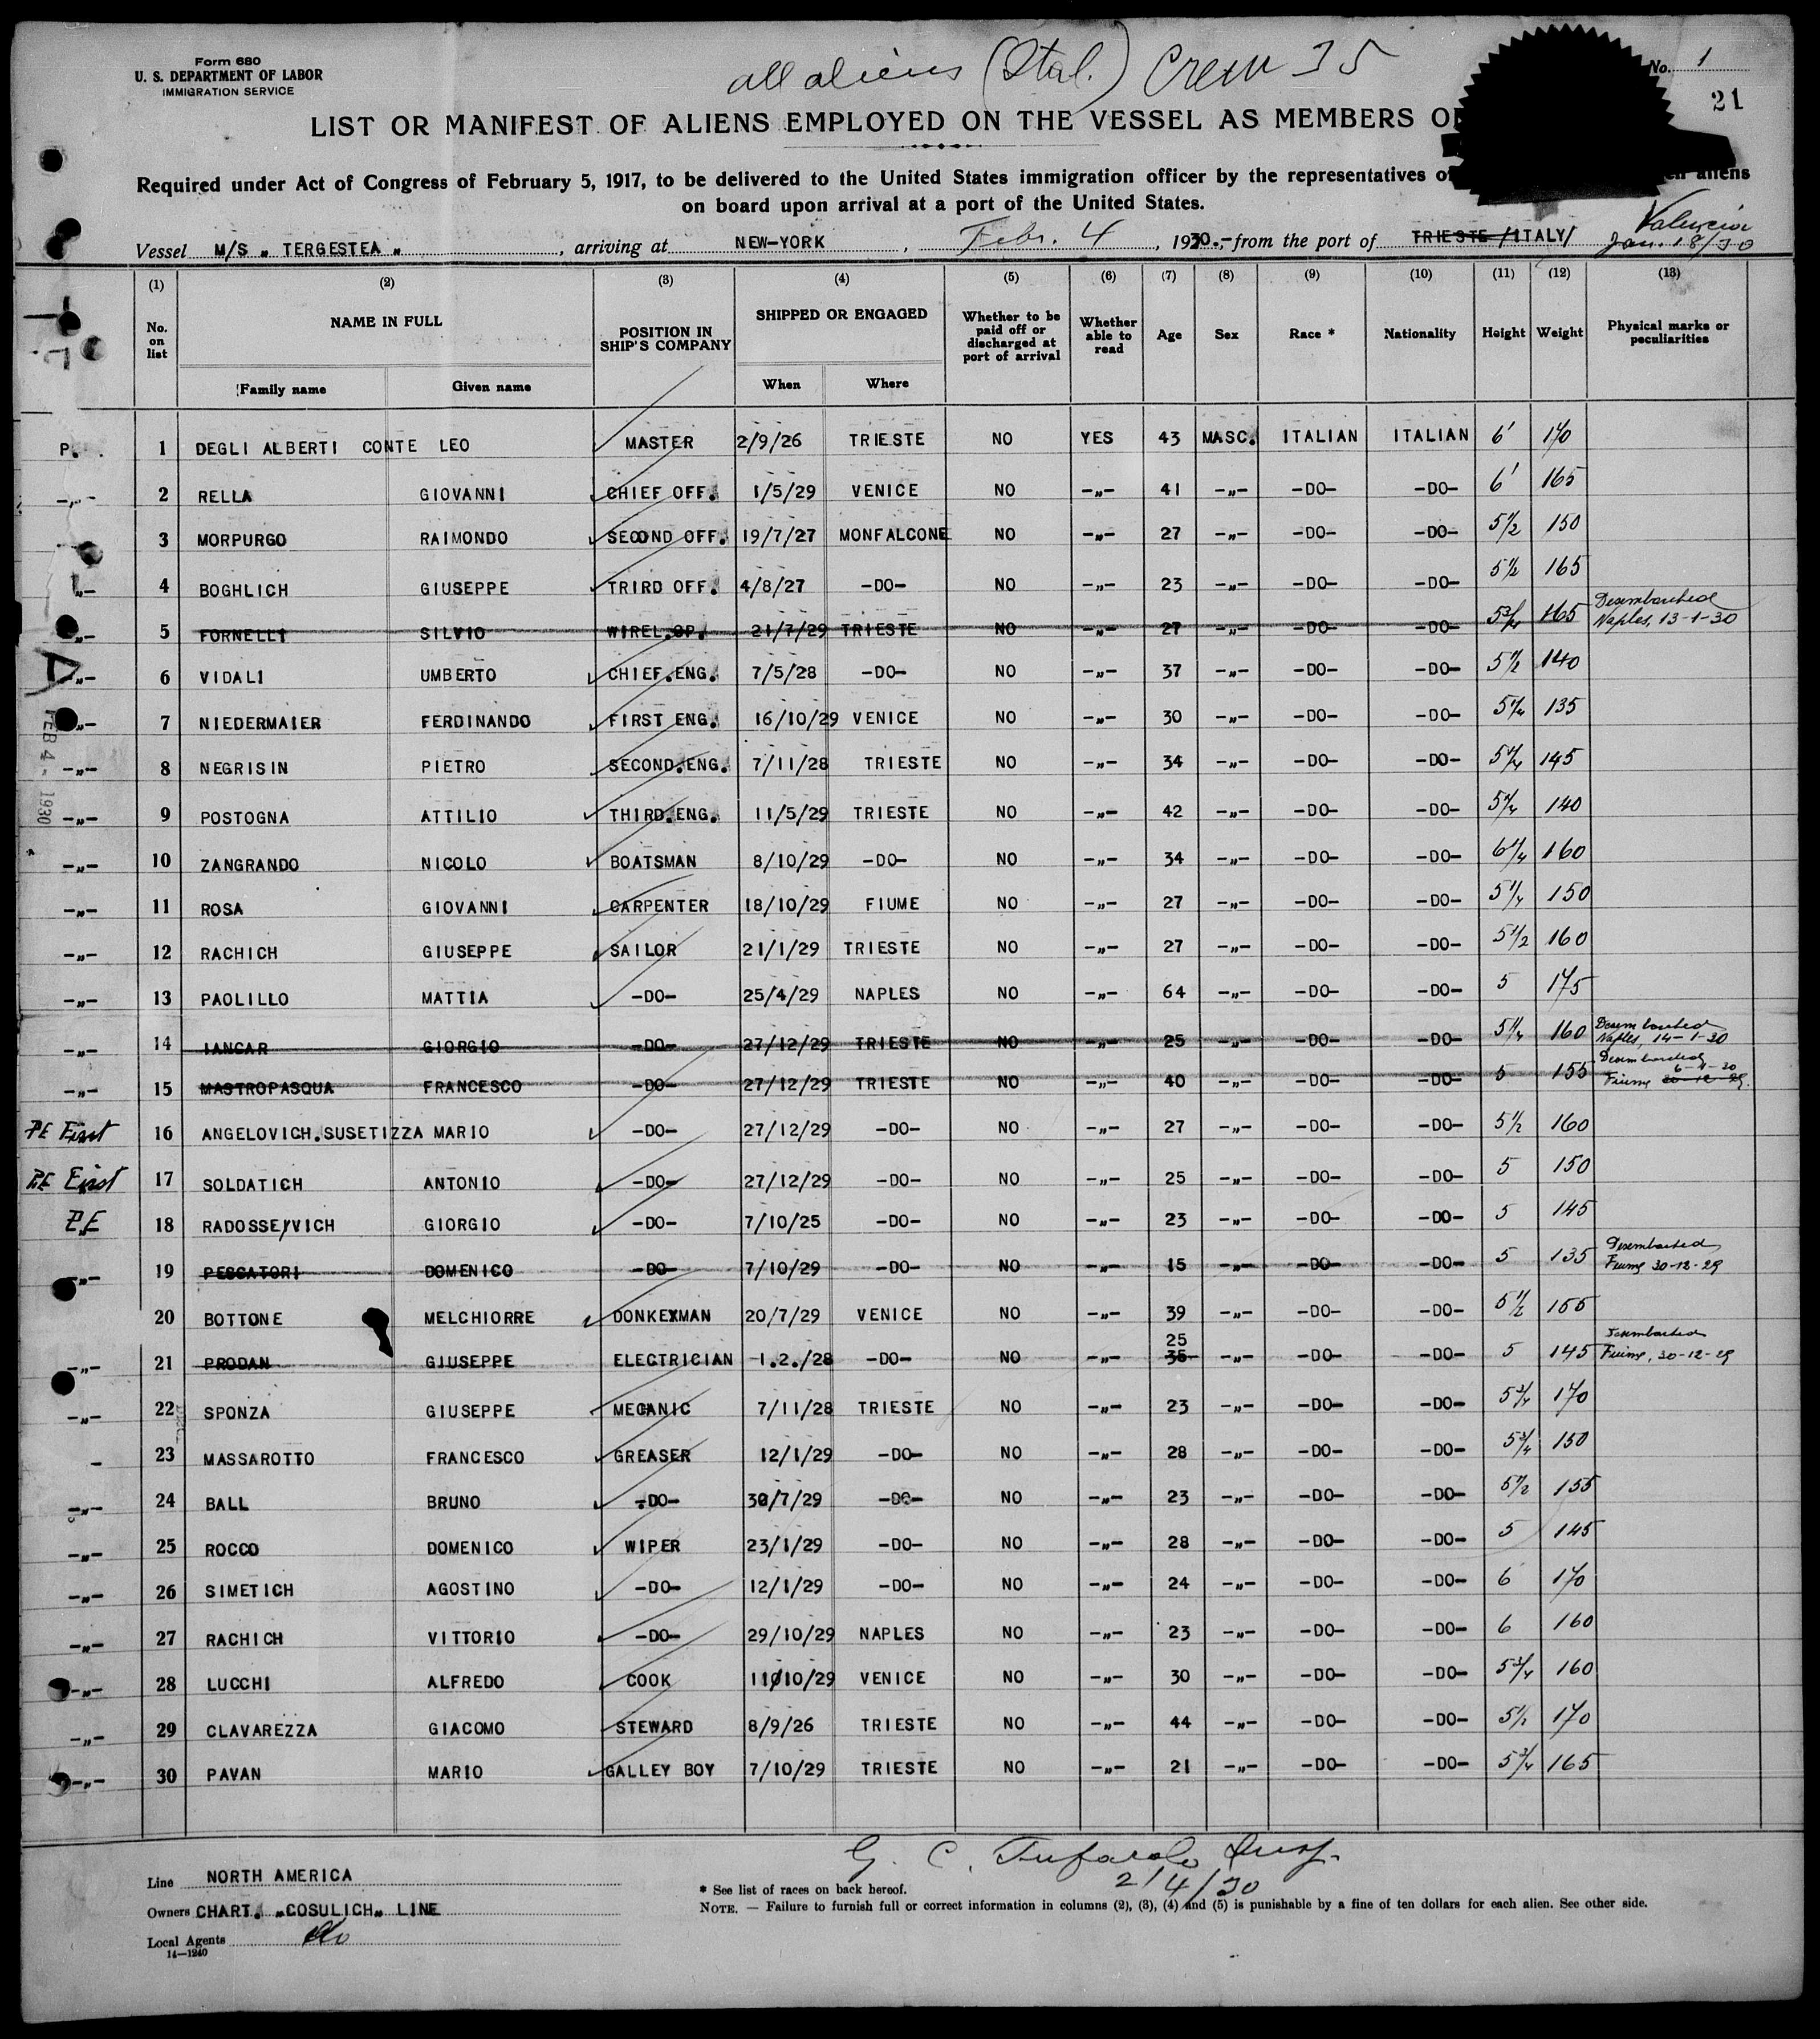 Form 680
U. S. DEPARTMENT OF LABOR
IMMIGRATION SERVICE
all aliens (Ital.) Crew 35
No. 1
21
LIST OR MANIFEST OF ALIENS EMPLOYED ON THE VESSEL AS MEMBERS O
Required under Act of Congress of February 5, 1917, to be delivered to the United States immigration officer by the representatives of aliens
on board upon arrival at a port of the United States.
Valencia
Vessel M/S „ TERGESTEA „ , arriving at NEW-YORK , Febr. 4 , 1930.-, from the port of TRIESTE /ITALY/ Jan. 18/30
(1) (2) (3) (4) (5) (6) (7) (8) (9) (10) (11) (12) (13)
No. on list NAME IN FULL POSITION IN SHIP'S COMPANY SHIPPED OR ENGAGED Whether to be paid off or discharged at port of arrival Whether able to read Age Sex Race * Nationality Height Weight Physical marks or peculiarities
Family name Given name When Where
P. 1 DEGLI ALBERTI CONTE LEO MASTER 2/9/26 TRIESTE NO YES 43 MASC. ITALIAN ITALIAN 6' 170
-„- 2 RELLA GIOVANNI CHIEF OFF. 1/5/29 VENICE NO -„- 41 -„- -DO- -DO- 6' 165
3 MORPURGO RAIMONDO SECOND OFF. 19/7/27 MONFALCONE NO -„- 27 -„- -DO- -DO- 5 1/2 150
4 BOGHLICH GIUSEPPE TRIRD OFF. 4/8/27 -DO- NO -„- 23 -„- -DO- -DO- 5 1/2 165
-„- 5 FORNELLI SILVIO WIREL.OP. 21/7/29 TRIESTE NO -„- 27 -„- -DO- -DO- 5 3/4 165 Desembarked Naples, 13-1-30
-„- 6 VIDALI UMBERTO CHIEF.ENG. 7/5/28 -DO- NO -„- 37 -„- -DO- -DO- 5 1/2 140
-„- 7 NIEDERMAIER FERDINANDO FIRST ENG. 16/10/29 VENICE NO -„- 30 -„- -DO- -DO- 5 1/4 135
-„- 8 NEGRISIN PIETRO SECOND.ENG. 7/11/28 TRIESTE NO -„- 34 -„- -DO- -DO- 5 1/4 145
FEB 4 - 1930
-„- 9 POSTOGNA ATTILIO THIRD.ENG. 11/5/29 TRIESTE NO -„- 42 -„- -DO- -DO- 5 1/4 140
-„- 10 ZANGRANDO NICOLO BOATSMAN 8/10/29 -DO- NO -„- 34 -„- -DO- -DO- 6 1/4 160
-„- 11 ROSA GIOVANNI CARPENTER 18/10/29 FIUME NO -„- 27 -„- -DO- -DO- 5 1/4 150
-„- 12 RACHICH GIUSEPPE SAILOR 21/1/29 TRIESTE NO -„- 27 -„- -DO- -DO- 5 1/2 160
-„- 13 PAOLILLO MATTIA -DO- 25/4/29 NAPLES NO -„- 64 -„- -DO- -DO- 5 175
-„- 14 IANCAR GIORGIO -DO- 27/12/29 TRIESTE NO -„- 25 -„- -DO- -DO- 5 1/4 160 Desembarked Naples, 14-1-30
-„- 15 MASTROPASQUA FRANCESCO -DO- 27/12/29 TRIESTE NO -„- 40 -„- -DO- -DO- 5 155 Desembarked Fiume 30-12-29.
PE First 16 ANGELOVICH.SUSETIZZA MARIO -DO- 27/12/29 -DO- NO -„- 27 -„- -DO- -DO- 5 1/2 160
PE First 17 SOLDATICH ANTONIO -DO- 27/12/29 -DO- NO -„- 25 -„- -DO- -DO- 5 150
P.E 18 RADOSSE/VICH GIORGIO -DO- 7/10/25 -DO- NO -„- 23 -„- -DO- -DO- 5 145
-„- 19 PESCATORI DOMENICO -DO- 7/10/29 -DO- NO -„- 15 -„- -DO- -DO- 5 135 Desembarked Fiume 30-12-29
20 BOTTONE MELCHIORRE DONKEXMAN 20/7/29 VENICE NO -„- 39 -„- -DO- -DO- 5 1/2 155
-„- 21 PRODAN GIUSEPPE ELECTRICIAN -1.2./28 -DO- NO -„- 25 35 -„- -DO- -DO- 5 145 Desembarked Fiume, 30-12-29
-„- 22 SPONZA GIUSEPPE MECANIC 7/11/28 TRIESTE NO -„- 23 -„- -DO- -DO- 5 3/4 170
- 23 MASSAROTTO FRANCESCO GREASER 12/1/29 -DO- NO -„- 28 -„- -DO- -DO- 5 3/4 150
-„- 24 BALL BRUNO -DO- 30/7/29 -DO- NO -„- 23 -„- -DO- -DO- 5 1/2 155
-„- 25 ROCCO DOMENICO WIPER 23/1/29 -DO- NO -„- 28 -„- -DO- -DO- 5 145
-„- 26 SIMETICH AGOSTINO -DO- 12/1/29 -DO- NO -„- 24 -„- -DO- -DO- 6 170
-„- 27 RACHICH VITTORIO -DO- 29/10/29 NAPLES NO -„- 23 -„- -DO- -DO- 6 160
-„- 28 LUCCHI ALFREDO COOK 11/10/29 VENICE NO -„- 30 -„- -DO- -DO- 5 3/4 160
-„- 29 CLAVAREZZA GIACOMO STEWARD 8/9/26 TRIESTE NO -„- 44 -„- -DO- -DO- 5 1/2 170
-„- 30 PAVAN MARIO GALLEY BOY 7/10/29 TRIESTE NO -„- 21 -„- -DO- -DO- 5 3/4 165
G. C. Insp.
2/4/30
Line NORTH AMERICA
* See list of races on back hereof.
Owners CHART. „COSULICH„ LINE
NOTE. — Failure to furnish full or correct information in columns (2), (3), (4) and (5) is punishable by a fine of ten dollars for each alien. See other side.
Local Agents do
14—1240